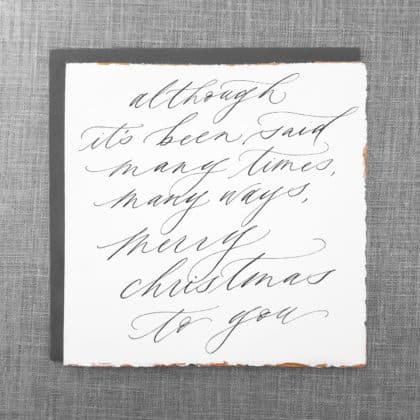 although
it's been said
many times,
many ways,
merry
christmas
to you